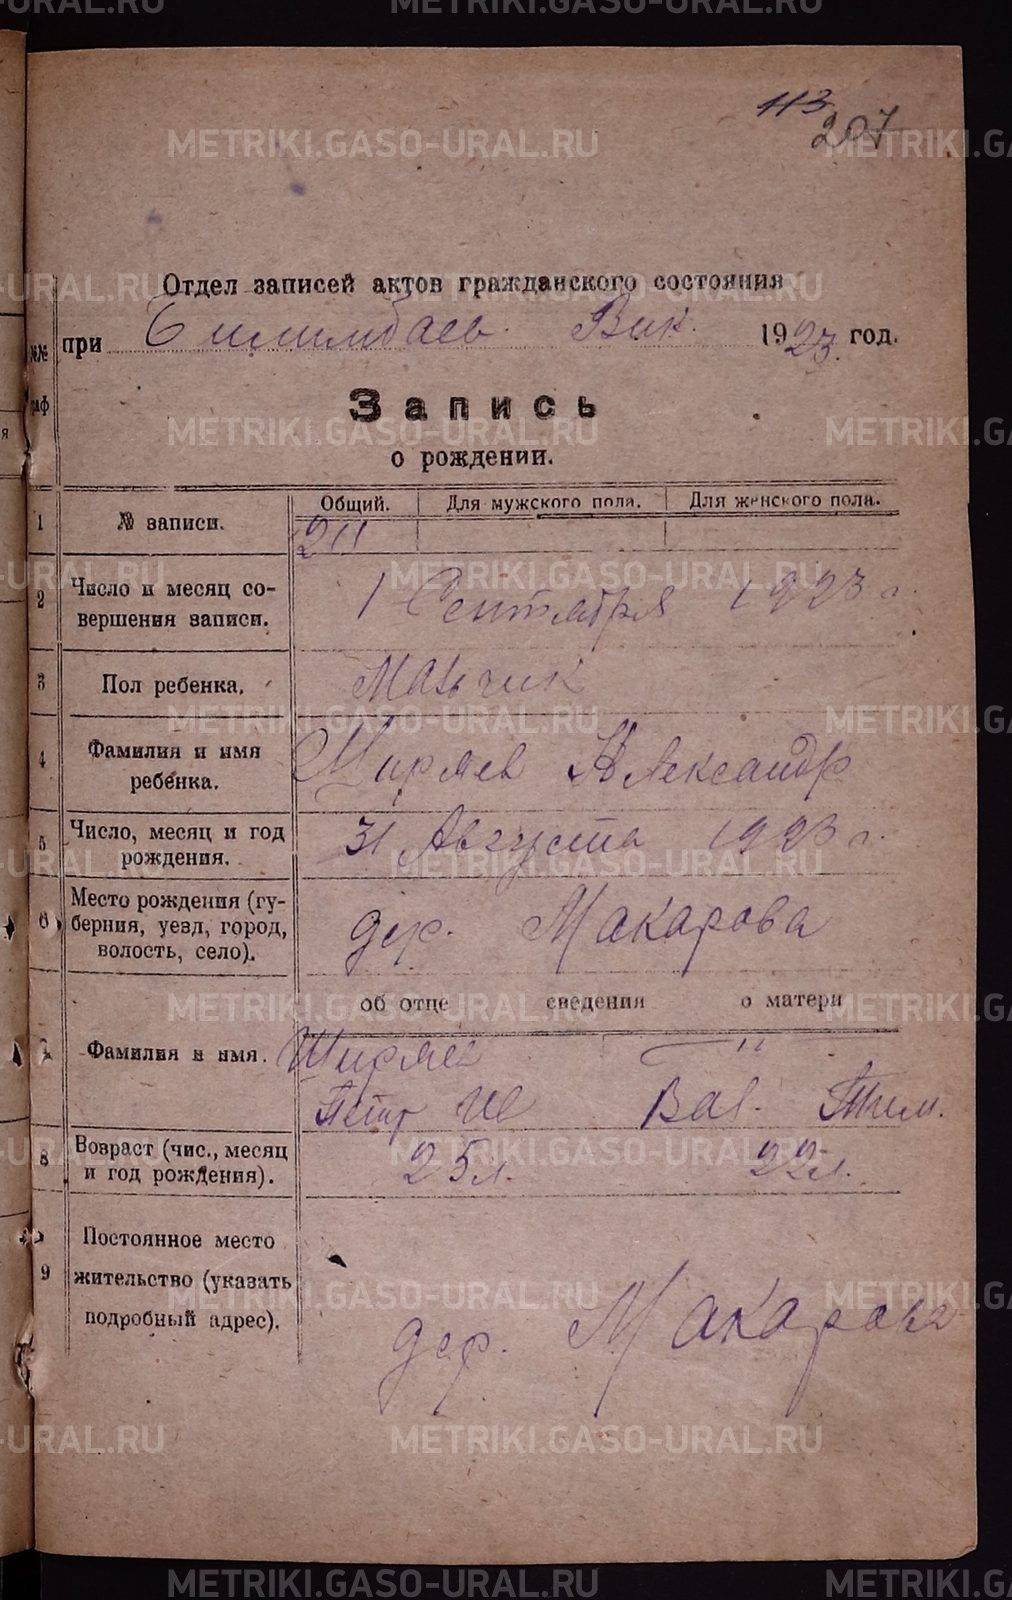 113
207
Отдел записей актов гражданского состояния
при Билимбаев. Вик. 1923. год.
№№ граф
Запись
о рождении.
Общий. Для мужского пола. Для женского пола.
1 № записи. 211
2 Число и месяц со-
вершения записи. 1 Сентября 1923 г.
3 Пол ребенка. Мальчик
4 Фамилия и имя
ребенка. Ширяев Александр
5 Число, месяц и год
рождения. 31 Августа 1923 г.
6 Место рождения (гу-
берния, уезд, город,
волость, село). дер. Макарова
об отце сведения о матери
7 Фамилия и имя. Ширяев — " —
Петр Ив Вал. Тим.
8 Возраст (чис., месяц
и год рождения). 25 л. 22 л.
9 Постоянное место
жительство (указать
подробный адрес). дер. Макарова
METRIKI.GASO-URAL.RU